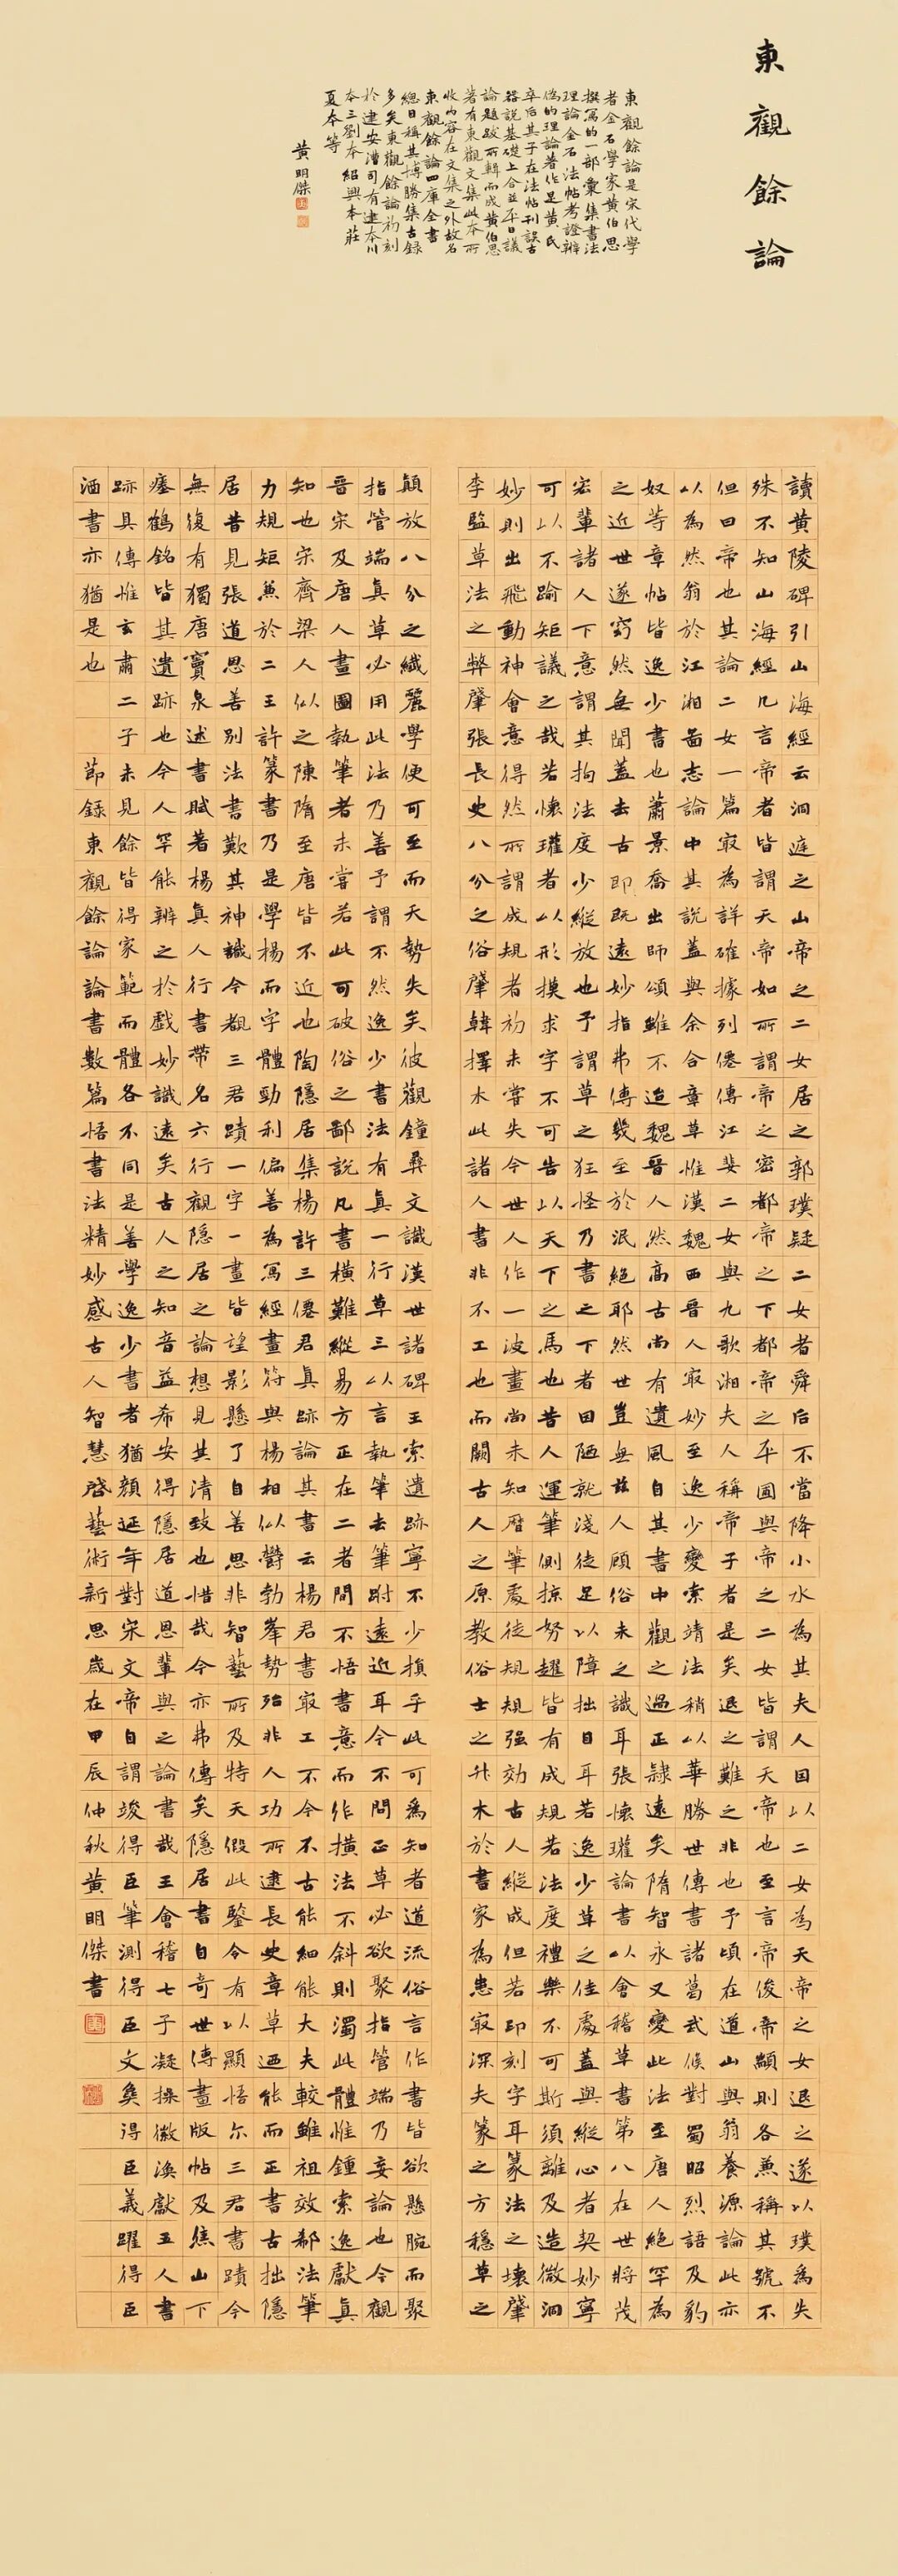 東觀餘論
東觀餘論是宋代學
者金石學家黃伯思
撰寫的一部彙集書法
理論金石法帖考證辨
偽的理論著作是黃氏
卒后其子在法帖刊誤古
器說基礎上合並平日議
論題跋所輯而成黃伯思
著有東觀文集此本所
收內容在文集之外故名
東觀餘論四庫全書
總目稱其博勝集古錄
多矣東觀餘論初刻
於建安漕司有建本川
本三劉本紹興本莊
夏本等
黃明傑
讀黃陵碑引山海經云洞庭之山帝之二女居之郭璞疑二女者舜后不當降小水為其夫人因以二女為天帝之女退之遂以璞為失
殊不知山海經凡言帝者皆謂天帝如所謂帝之密都帝之下都帝之平圃與帝之二女皆謂天帝也至言帝俊帝顓則各兼稱其號不
但曰帝也其論二女一篇最為詳確據列僊傳江斐二女與九歌湘夫人稱帝子者是矣退之難之非也予頃在道山與翁養源論此亦
以為然翁於江湘圖志論中其說蓋與余合章草惟漢魏西晉人最妙至逸少變索靖法稍以華勝世傳書諸葛武侯對蜀昭烈語及豹
奴等章帖皆逸少書也蕭景喬出師頌雖不迨魏晉人然高古尚有遺風自其書中觀之過正隸遠矣隋智永又變此法至唐人絕罕為
之近世遂窮然無聞蓋去古即既遠妙指弗傳幾至於泯絕耶然世豈無茲人顧俗未之識耳張懷瓘論書以會稽草書第八在世將茂
宏輩諸人下意謂其拘法度少縱放也予謂草之狂怪乃書之下者因陋就淺徒足以障拙目耳若逸少草之佳處蓋與縱心者契妙寧
可以不踰矩議之哉若懷瓘者以形摸求字不可告以天下之馬也昔人運筆側掠努趯皆有成規若法度禮樂不可斯須離及造微洞
妙則出飛動神會意得然所謂成規者初未嘗失今世人作一波畫尚未知厝筆處徒規規强効古人縱成但若印刻字耳篆法之壞肇
李監草法之弊肇張長史八分之俗肇韓擇木此諸人書非不工也而闕古人之原教俗士之升木於書家為患最深夫篆之方穩草之
顛放八分之纖麗學便可至而天勢失矣彼觀鐘彝文識漢世諸碑王索遺跡寧不少損乎此可為知者道流俗言作書皆欲懸腕而聚
指管端真草必用此法乃善予謂不然逸少書法有真一行草三以言執筆去筆跗遠近耳今不問正草必欲聚指管端乃妄論也今觀
晉宋及唐人畫圖執筆者未嘗若此可破俗之鄙說凡書橫難縱易方正在二者間不悟書意而作橫法不斜則濁此體惟鍾索逸獻真
知也宋齊梁人似之陳隋至唐皆不近也陶隱居集楊許三僊君真跡論其書云楊君書最工不今不古能細能大夫較雖祖效郗法筆
力規矩兼於二王許篆書乃是學楊而字體勁利偏善為寫經畫符與楊相似欝勃峯勢殆非人功所逮長史章草迺能而正書古拙隱
居昔見張道恩善別法書歎其神識今覩三君蹟一字一畫皆望影懸了自善思非智藝所及特天假此鑒令有以顯悟尓三君書蹟今
無復有獨唐竇泉述書賦著楊真人行書帶名六行觀隱居之論想見其清致也惜哉今亦弗傳矣隱居書自奇世傳畫版帖及焦山下
瘞鶴銘皆其遺跡也今人罕能辨之於戲妙識遠矣古人之知音益希安得隱居道恩輩與之論書哉王會稽七子凝操徽渙獻五人書
跡具傳惟玄肅二子未見餘皆得家範而體各不同是善學逸少書者猶顏延年對宋文帝自謂竣得臣筆測得臣文㚟得臣義躍得臣
酒書亦猶是也 節錄東觀餘論論書數篇悟書法精妙感古人智慧啓藝術新思歲在甲辰仲秋黃明傑書